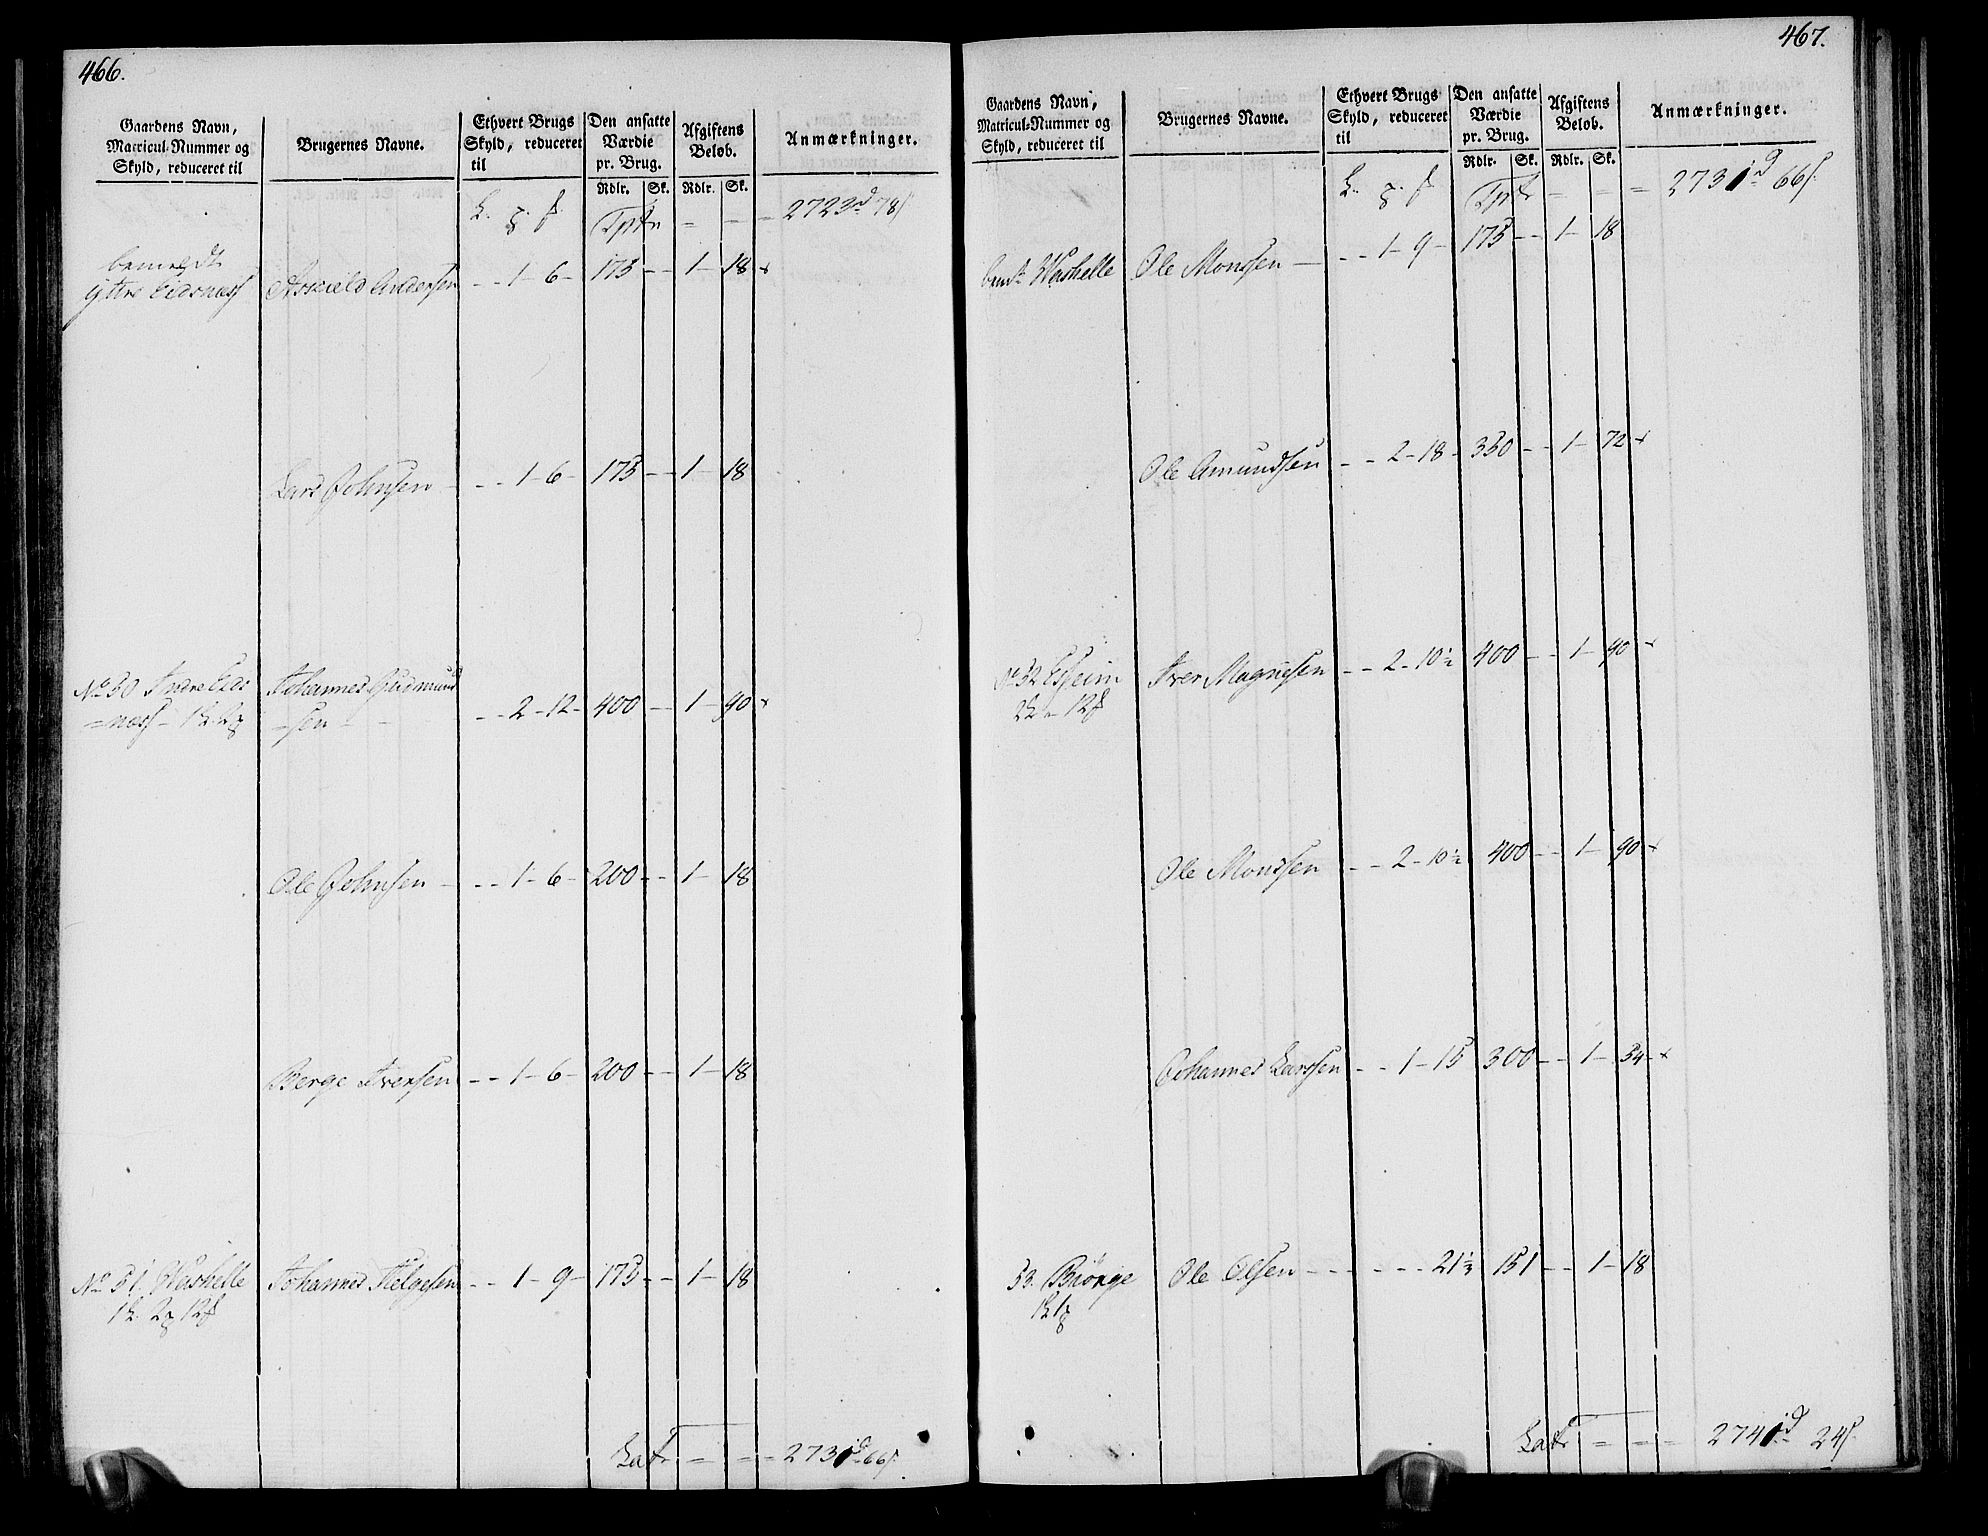 466.
Gaardens Navn, Matricul-Nummer og Skyld, reduceret til
Brugernes Navne.
Ethvert Brugs Skyld, reduceret til
Den ansatte Værdie pr. Brug.
Afgiftens Beløb.
Anmærkninger.
Rdlr. Sk. Rdlr. Sk.
Tptr = = = 2723 78
bemeldt
Yttre Eidsness Askield Andersen - - 1 - 6 - 175 - - 1 - 18
Lars Johnsen - - - 1 - 6 - 175 - - 1 - 18
No 50 Indre Eids Johannes Gudmund
=ness - =sen - - - - 2 - 12 - 400 - - 1 - 90
Ole Johnsen - - - 1 - 6 - 200 - - 1 - 18
Berge Iversen - - 1 - 6 - 200 - - 1 - 18
No 51 Washelle Johannes Helgesen - - 1 - 9 - 175 - - 1 - 18
Latr = = = 2731 66
467.
Gaardens Navn, Matricul-Nummer og Skyld, reduceret til
Brugernes Navne.
Ethvert Brugs Skyld, reduceret til
Den ansatte Værdie pr. Brug.
Afgiftens Beløb.
Anmærkninger.
Rdlr. Sk. Rdlr. Sk.
Tptr = = = 2731 66
bemt Washelle Ole Monssen - - - 1 - 9 - 175 - - 1 - 18
Ole Amundsen - - 2 - 18 - 350 - - 1 - 72
No 52 Iver Magnesen - - 2 - 10½ 400 - - 1 - 90
Ole Monssen - - 2 - 10½ 400 - - 1 - 90
Johannes Larssen - - 1 - 15 300 - - 1 - 54
53. Ole Olsen - - - - - 21 151 - - 1 - 18
Latr = = = 2741 24